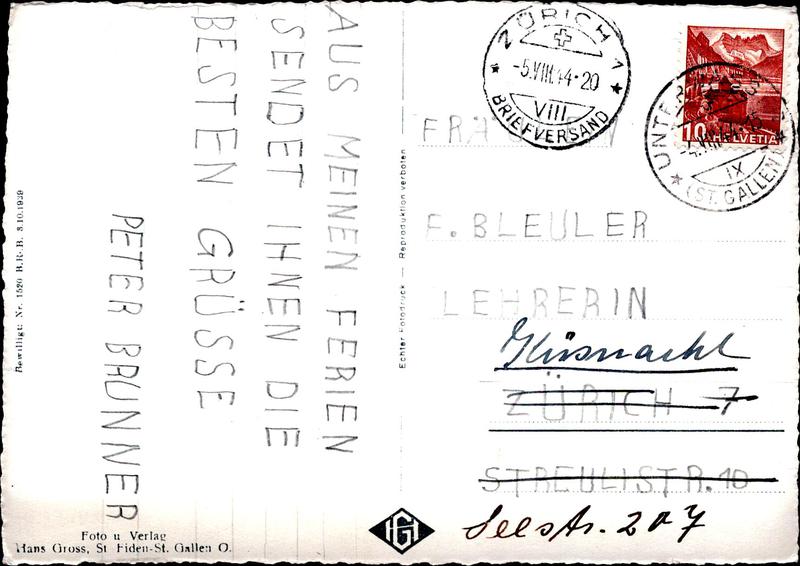 AUS MEINEN FERIEN
SENDET IHNEN DIE
BESTEN GRÜSSE
PETER BRUNNER
Bewilligt: Nr. 1520 B.R.B. 3.10.1939
Foto u Verlag
Hans Gross, St Fiden-St. Gallen O.
Echter Fotodruck — Reproduktion verboten
HGI
ZÜRICH 1
-5.VIII.44-20
VIII
BRIEFVERSAND
10 HELVETIA
IX
(ST. GALLEN)
F. BLEULER
LEHRERIN
Küsnacht
ZÜRICH 7
STREULISTR. 10
Seestr. 207